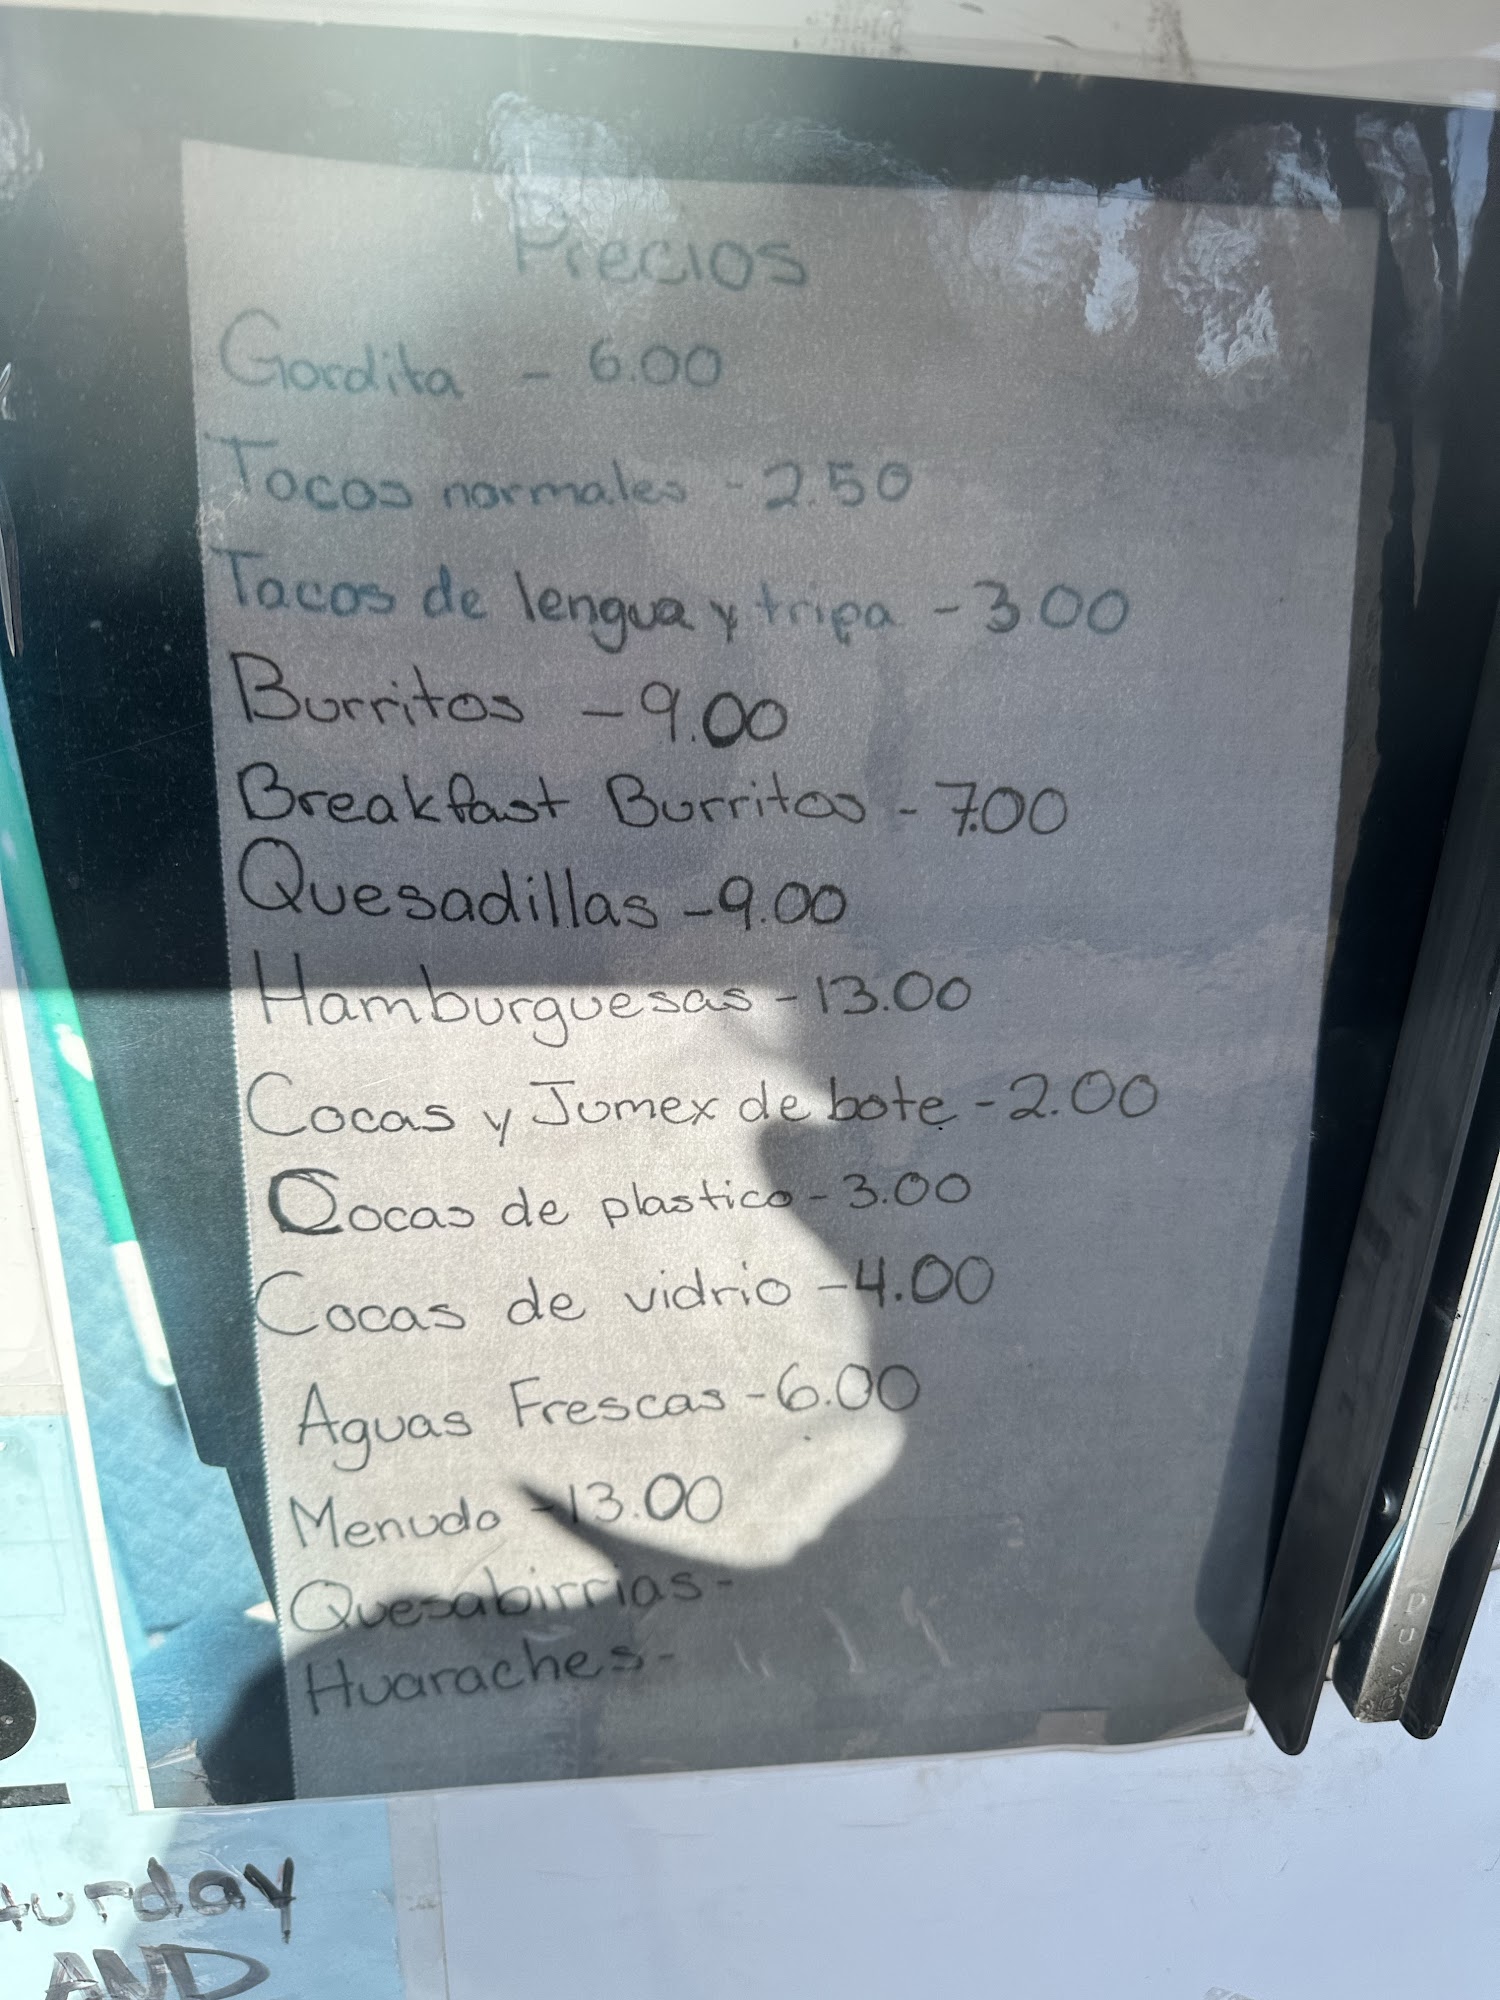 Precios
Gordita - 6.00
Tacos normales - 2.50
Tacos de lengua y tripa - 3.00
Burritos - 9.00
Breakfast Burritos - 7.00
Quesadillas - 9.00
Hamburguesas - 13.00
Cocas y Jumex de bote - 2.00
Cocas de plastico - 3.00
Cocas de vidrio - 4.00
Aguas Frescas - 6.00
Menudo - 13.00
Quesabirrias -
Huaraches -
turday
AND